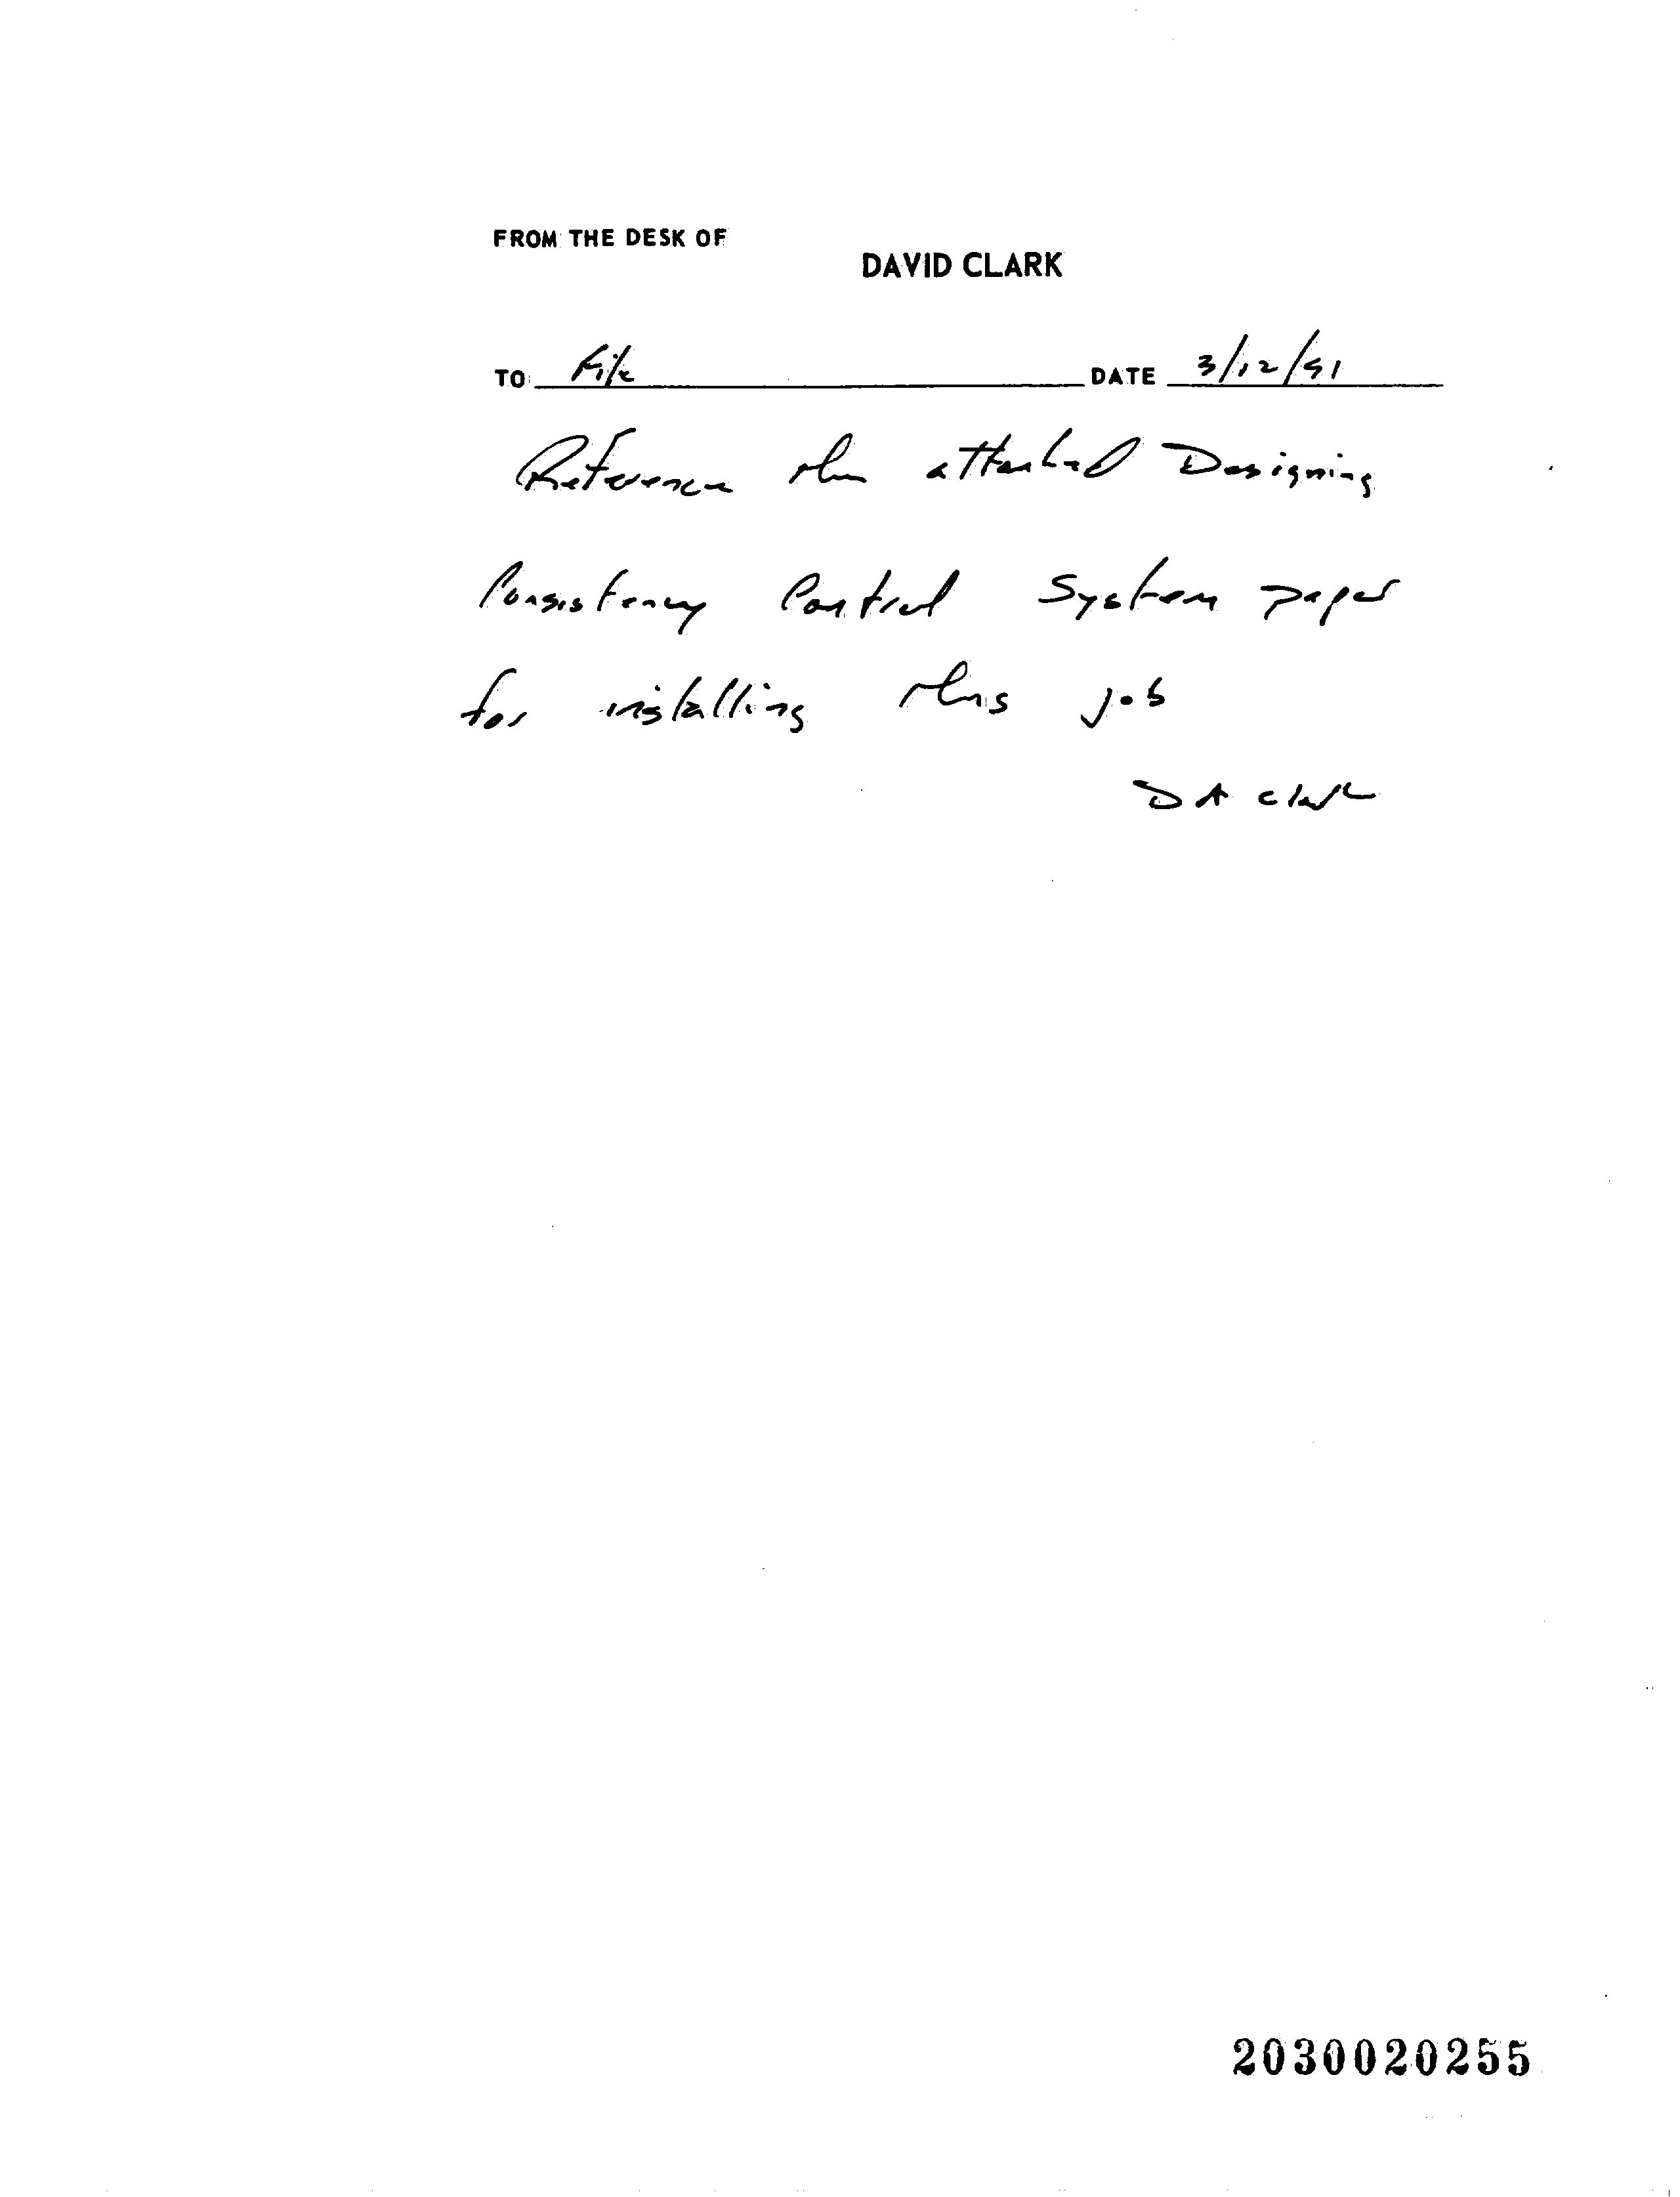 FROM THE DESK OF
DAVID CLARK
TO File DATE 3/12/91
Reference the attached Designing
Consistency Control System paper
for installing this job
DA Clark
2030020255